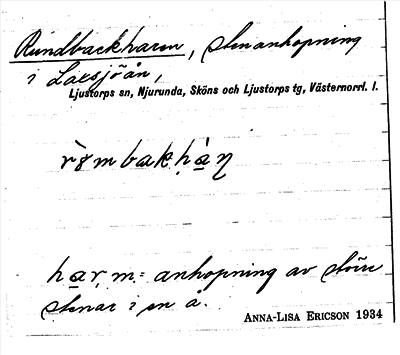 Rundbackharen, stenanhopning
i Laxsjöån,
Ljustorps sn, Njurunda, Sköns och Ljustorps tg, Västernorrl. l.
har, m. = anhopning av större
stenar i en å.
ANNA-LISA ERICSON 1934